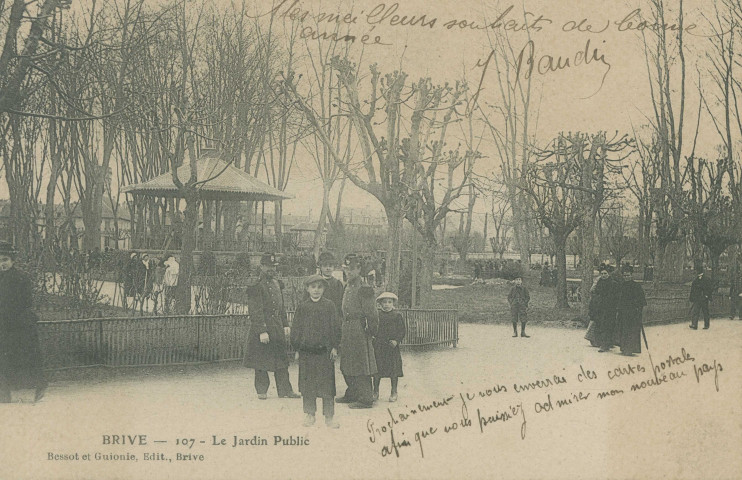 Mes meilleurs souhaits de bonne
année
J Baudin
Prochainement je vous enverrai des cartes postales
afin que vous puissiez admirer mon nouveau pays
BRIVE — 107 - Le Jardin Public
Bessot et Guionie, Edit., Brive